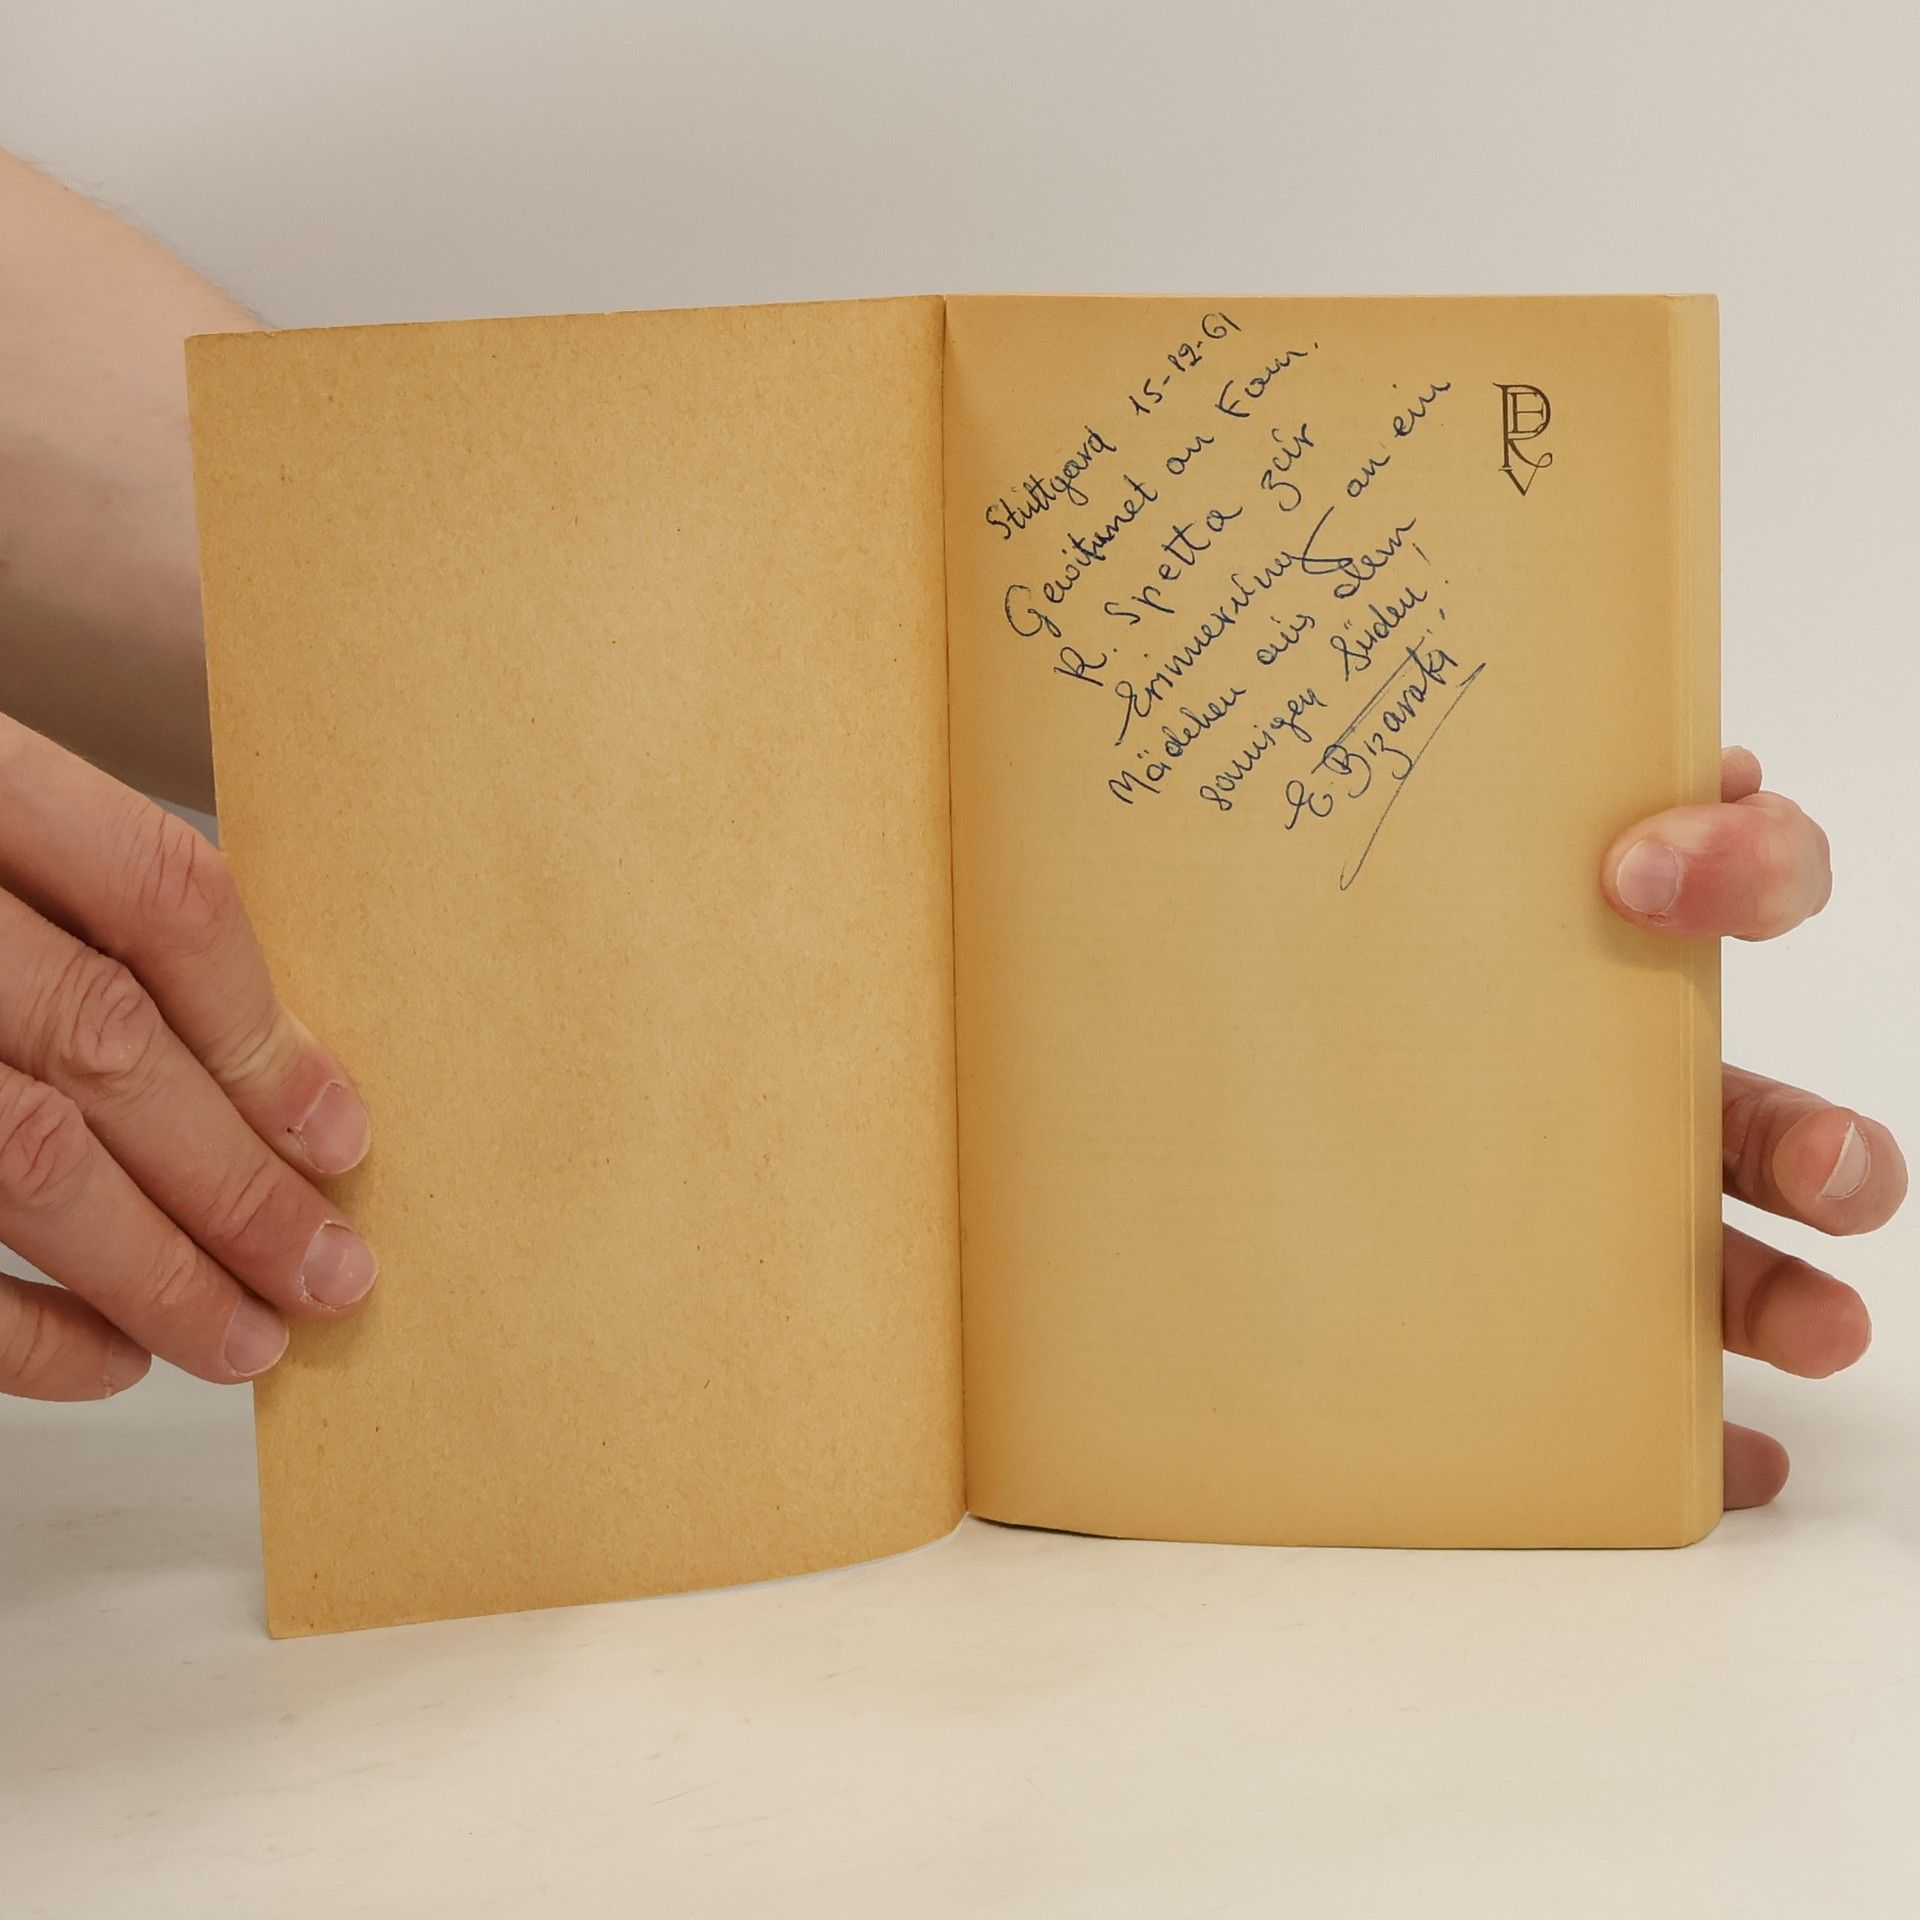 Stuttgard 15-12-61
Gewitmet an Fam.
R. Spetta zur
Erinnerung an ein
Mädchen aus dem
sonnigen Süden!
E. Bizaraki